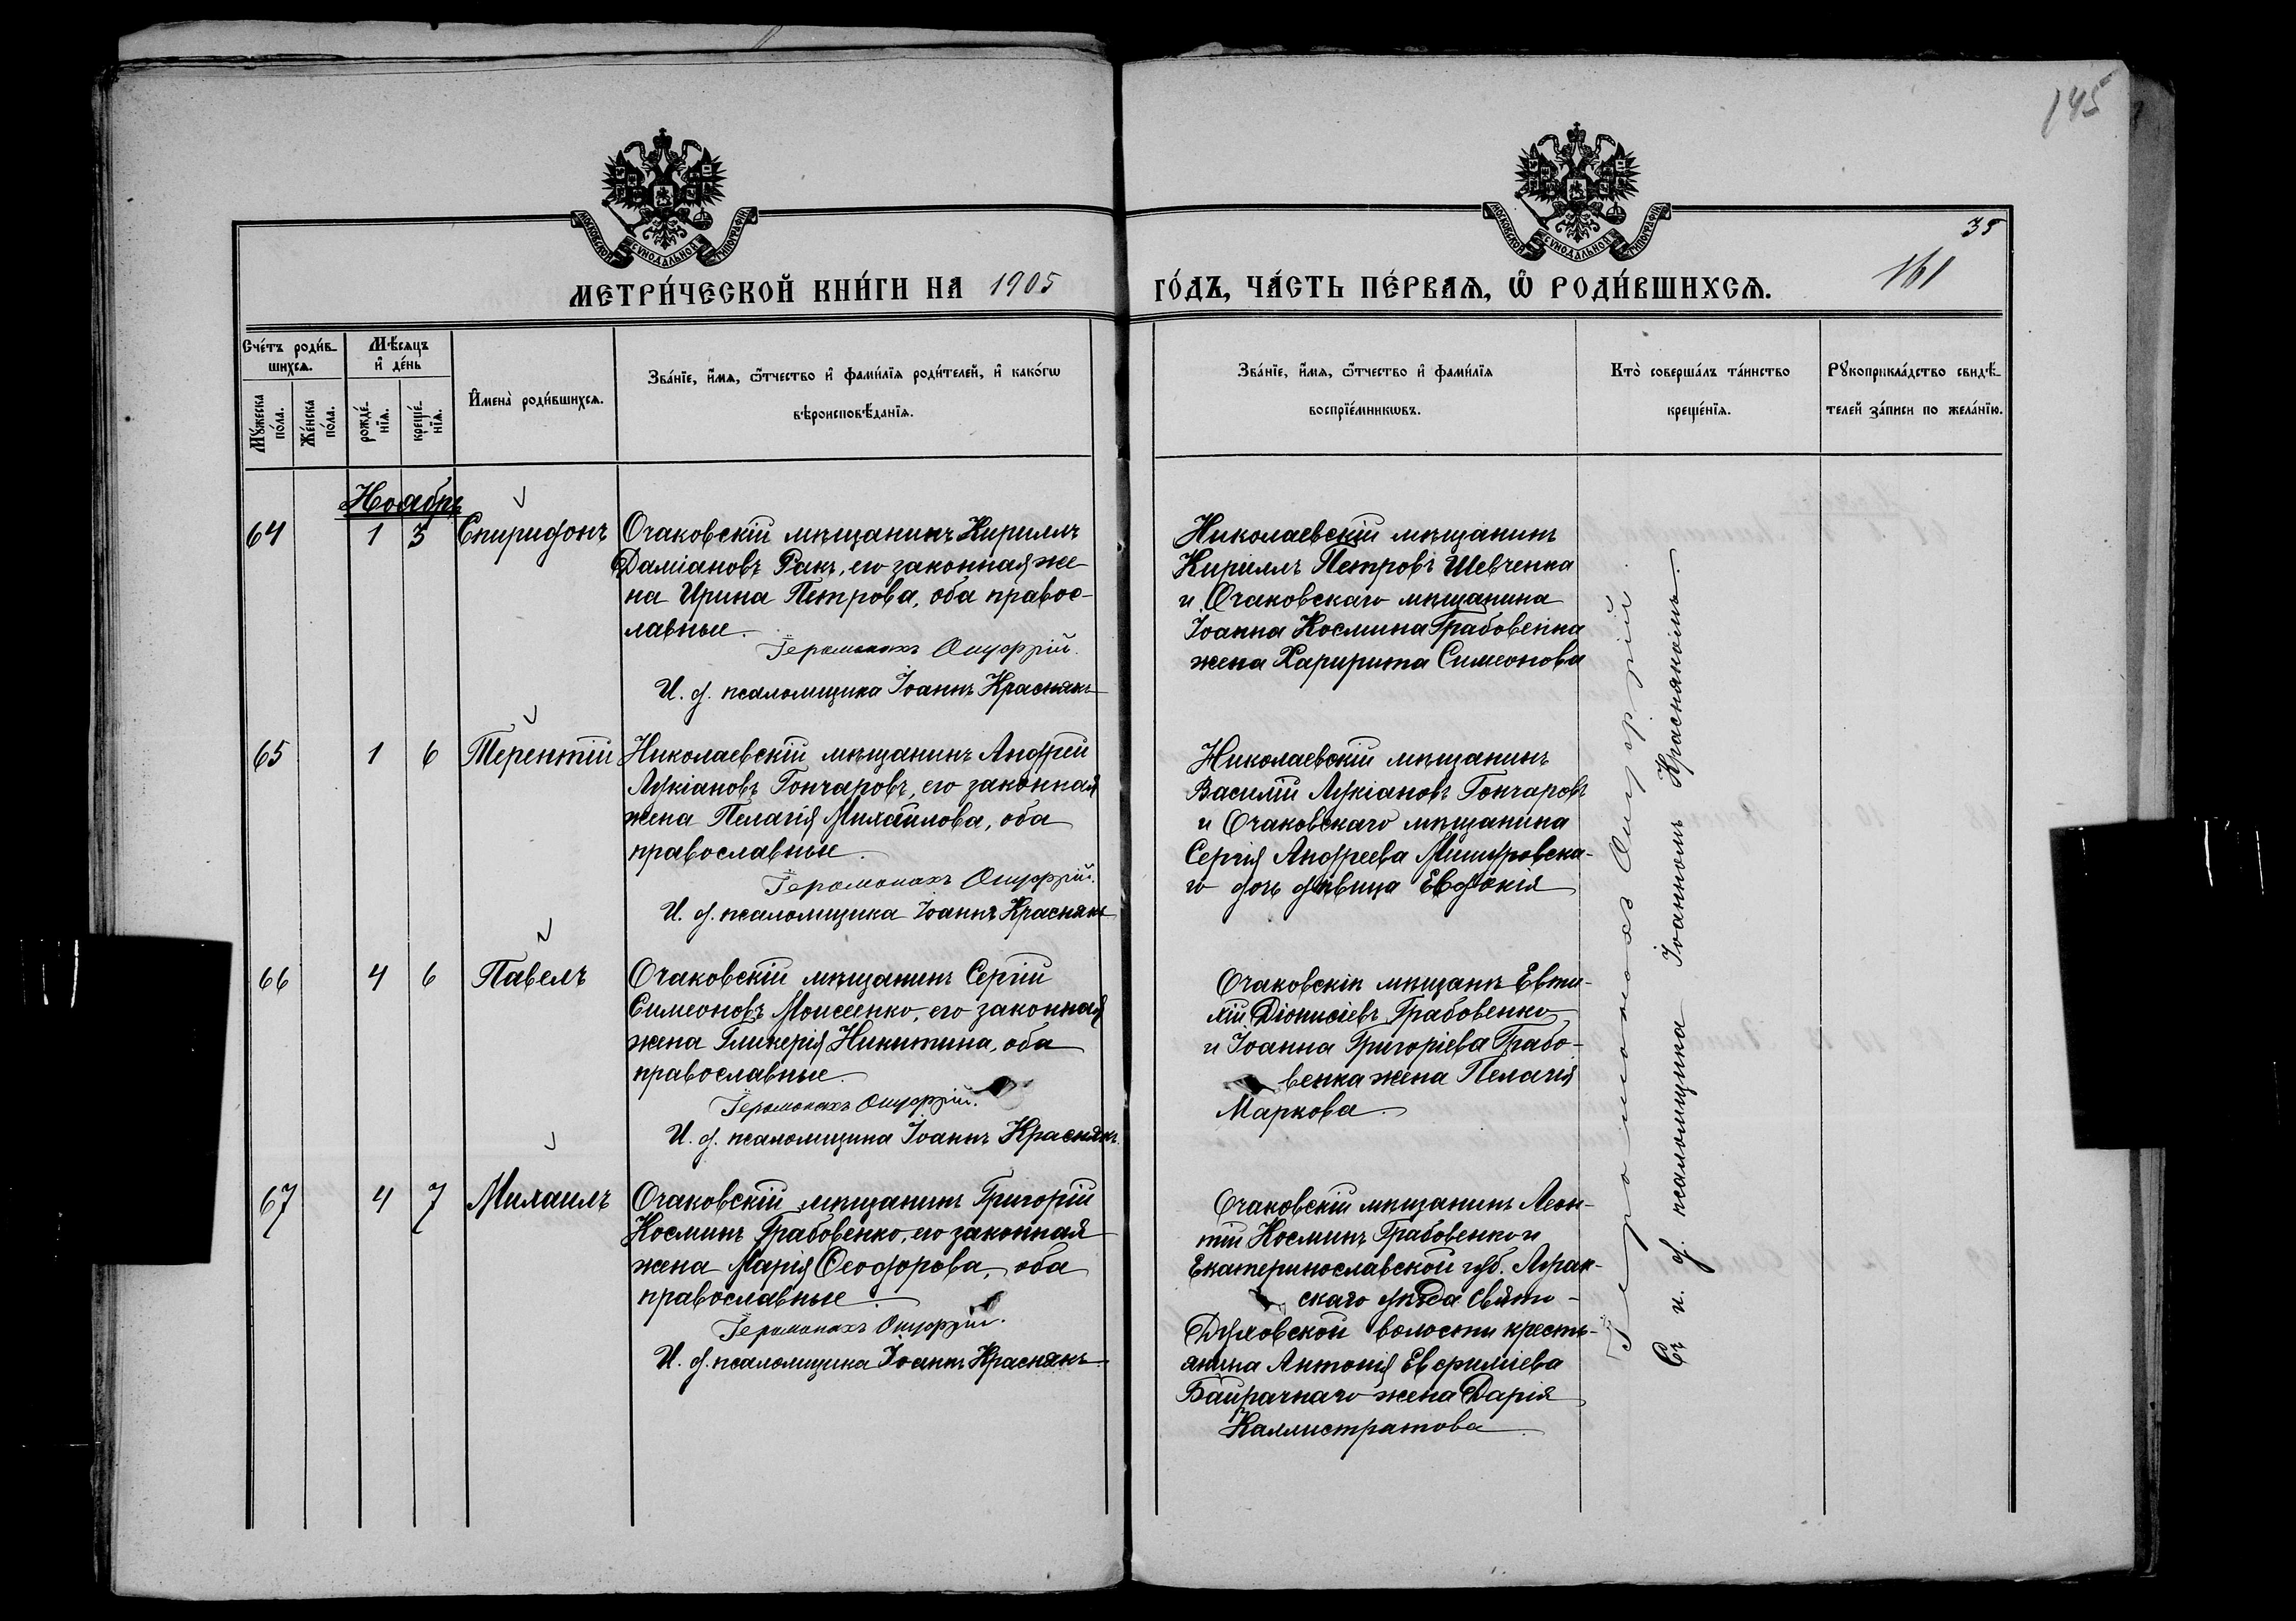 145
МОСКОВСКОЙ СУНОДАЛЬНОЙ ТИПОГРАФІИ
МОСКОВСКОЙ СУНОДАЛЬНОЙ ТИПОГРАФІИ
35
МЕТРИ́ЧЕСКОЙ КНИ́ГИ НА 1905
ГО́ДЪ, ЧА́СТЬ ПЕ́РВАѦ, Ѡ҆ РОДИ́ВШИХСѦ.
161
Сче́тъ роди́в-
шихсѧ.
Мꙋ́жеска по́ла.
Же́нска по́ла.
Мѣ́сѧцъ
и҆ де́нь
рожде́-
нїѧ.
креще́-
нїѧ.
И҆мена̀ роди́вшихсѧ.
Зва́нїе, и҆́мѧ, ѻ҆́тчество и҆ фами́лїѧ роди́телей, и҆ како́гѡ
вѣроисповѣ́данїѧ.
Зва́нїе, и҆́мѧ, ѻ҆́тчество и҆ фами́лїѧ
воспрїе́мникѡвъ.
Кто̀ соверша́лъ та́инство
креще́нїѧ.
Рꙋкоприкла́дство свидѣ́-
телей за́писи по жела́нїю.
Ноябрь
64 1 3 Спиридонъ
Очаковскій мѣщанинъ Кириллъ
Даміановъ Ракъ, его законная же-
на Ирина Петрова, оба правос-
лавные.
Іеромонахъ Онуфрій.
И. д. псаломщика Іоаннъ Краснякъ
Николаевскій мѣщанинъ
Кириллъ Петровъ Шевченка
и Очаковскаго мѣщанина
Іоанна Космина Грабовенка
жена Симеонова
65 1 6 Терентій
Николаевскій мѣщанинъ Андрей
Лукіановъ Гончаровъ, его законная
жена Пелагія Михайлова, оба
православные.
Іеромонахъ Онуфрій.
И. д. псаломщика Іоаннъ Краснякъ
Николаевскій мѣщанинъ
Василій Лукіановъ Гончаровъ
и Очаковскаго мѣщанина
Сергія Андреева Мишуровска-
го дочь дѣвица Евдокія
66 4 6 Павелъ
Очаковскій мѣщанинъ Сергій
Симеоновъ Моисеенко, его законная
жена Гликерія Никитина, оба
православные.
Іеромонахъ Онуфрій.
И. д. псаломщика Іоаннъ Краснякъ
Очаковскіе мѣщане Евти-
мій Діонисіевъ Грабовенко
и Іоанна Григоріева Грабо-
венка жена Пелагія
Маркова.
67 4 7 Михаилъ
Очаковскій мѣщанинъ Григорій
Косминъ Грабовенко, его законная
жена Марія Ѳеодорова, оба
православные.
Іеромонахъ Онуфрій.
И. д. псаломщика Іоаннъ Краснякъ
Очаковскій мѣщанинъ Леон-
тій Косминъ Грабовенко и
Екатеринославской губ.
скаго уѣзда Свято-
Духовской волости кресть-
янина Антонія Евфиміева
Байрачнаго жена Дарія
Каллистратова.
Іеромонахъ Онуфрій.
Съ и. д. псаломщика Іоанномъ Краснякомъ.